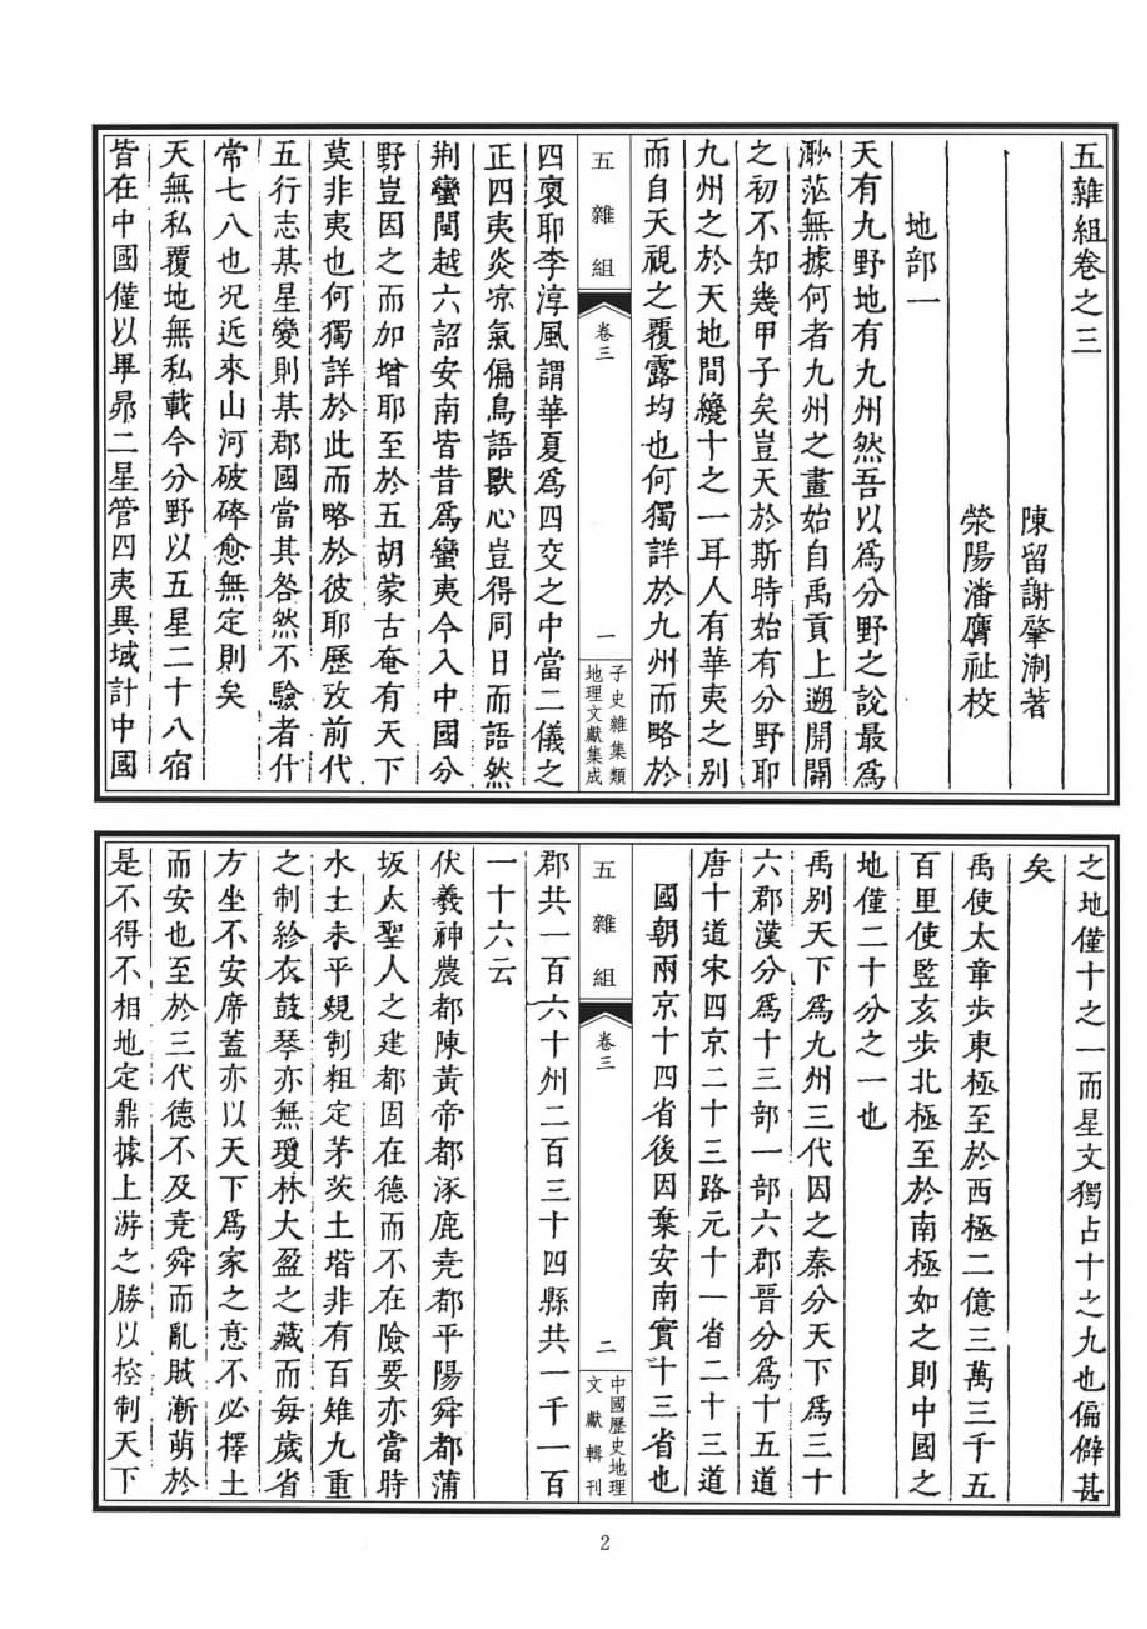 五雜組卷之三
陳留謝肇淛著
滎陽潘膺祉校
地部一
天有九野地有九州然吾以爲分野之說最爲
渺茫無據何者九州之畫始自禹貢上遡開闢
之初不知幾甲子矣豈天於斯時始有分野耶
九州之於天地間纔十之一耳人有華夷之別
而自天視之覆露均也何獨詳於九州而略於
五雜組
卷三
一
子史雜集類
地理文獻集成
四裔耶李淳風謂華夏爲四交之中當二儀之
正四夷炎凉氣偏鳥語獸心豈得同日而語然
荆蠻閩越六詔安南皆昔爲蠻夷今入中國分
野豈因之而加增耶至於五胡蒙古奄有天下
莫非夷也何獨詳於此而略於彼耶歷攷前代
五行志某星變則某郡國當其咎然不驗者什
常七八也况近來山河破碎愈無定則矣
天無私覆地無私載今分野以五星二十八宿
皆在中國僅以畢昴二星管四夷異域計中國
之地僅十之一而星文獨占十之九也偏僻甚
矣
禹使太章步東極至於西極二億三萬三千五
百里使監亥步北極至於南極如之則中國之
地僅二十分之一也
禹別天下爲九州三代因之秦分天下爲三十
六郡漢分爲十三部一部六郡晋分爲十五道
唐十道宋四京二十三路元十一省二十三道
國朝兩京十四省後因棄安南實十三省也
五雜組
卷三
二
中國歷史地理
文獻輯刊
郡共一百六十州二百三十四縣共一千一百
一十六云
伏羲神農都陳黃帝都涿鹿堯都平陽舜都蒲
坂大聖人之建都固在德而不在險要亦當時
水土未平規制粗定茅茨土堦非有百雉九重
之制紾衣鼓琴亦無瓊林大盈之藏而每歲省
方坐不安席蓋亦以天下爲家之意不必擇土
而安也至於三代德不及堯舜而亂賊漸萌於
是不得不相地定鼎據上游之勝以控制天下
2